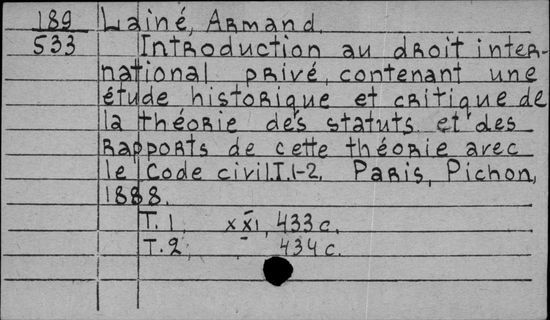 189 Lainé, Armand.
533 Introduction au droit inter-
national privé, contenant une
étude historique et critique de
la théorie des statuts et des
rapports de cette théorie avec
le Code civil.T.1-2. Paris, Pichon,
1888.
T.1. XXI, 433 c.
T.2. 434 c.